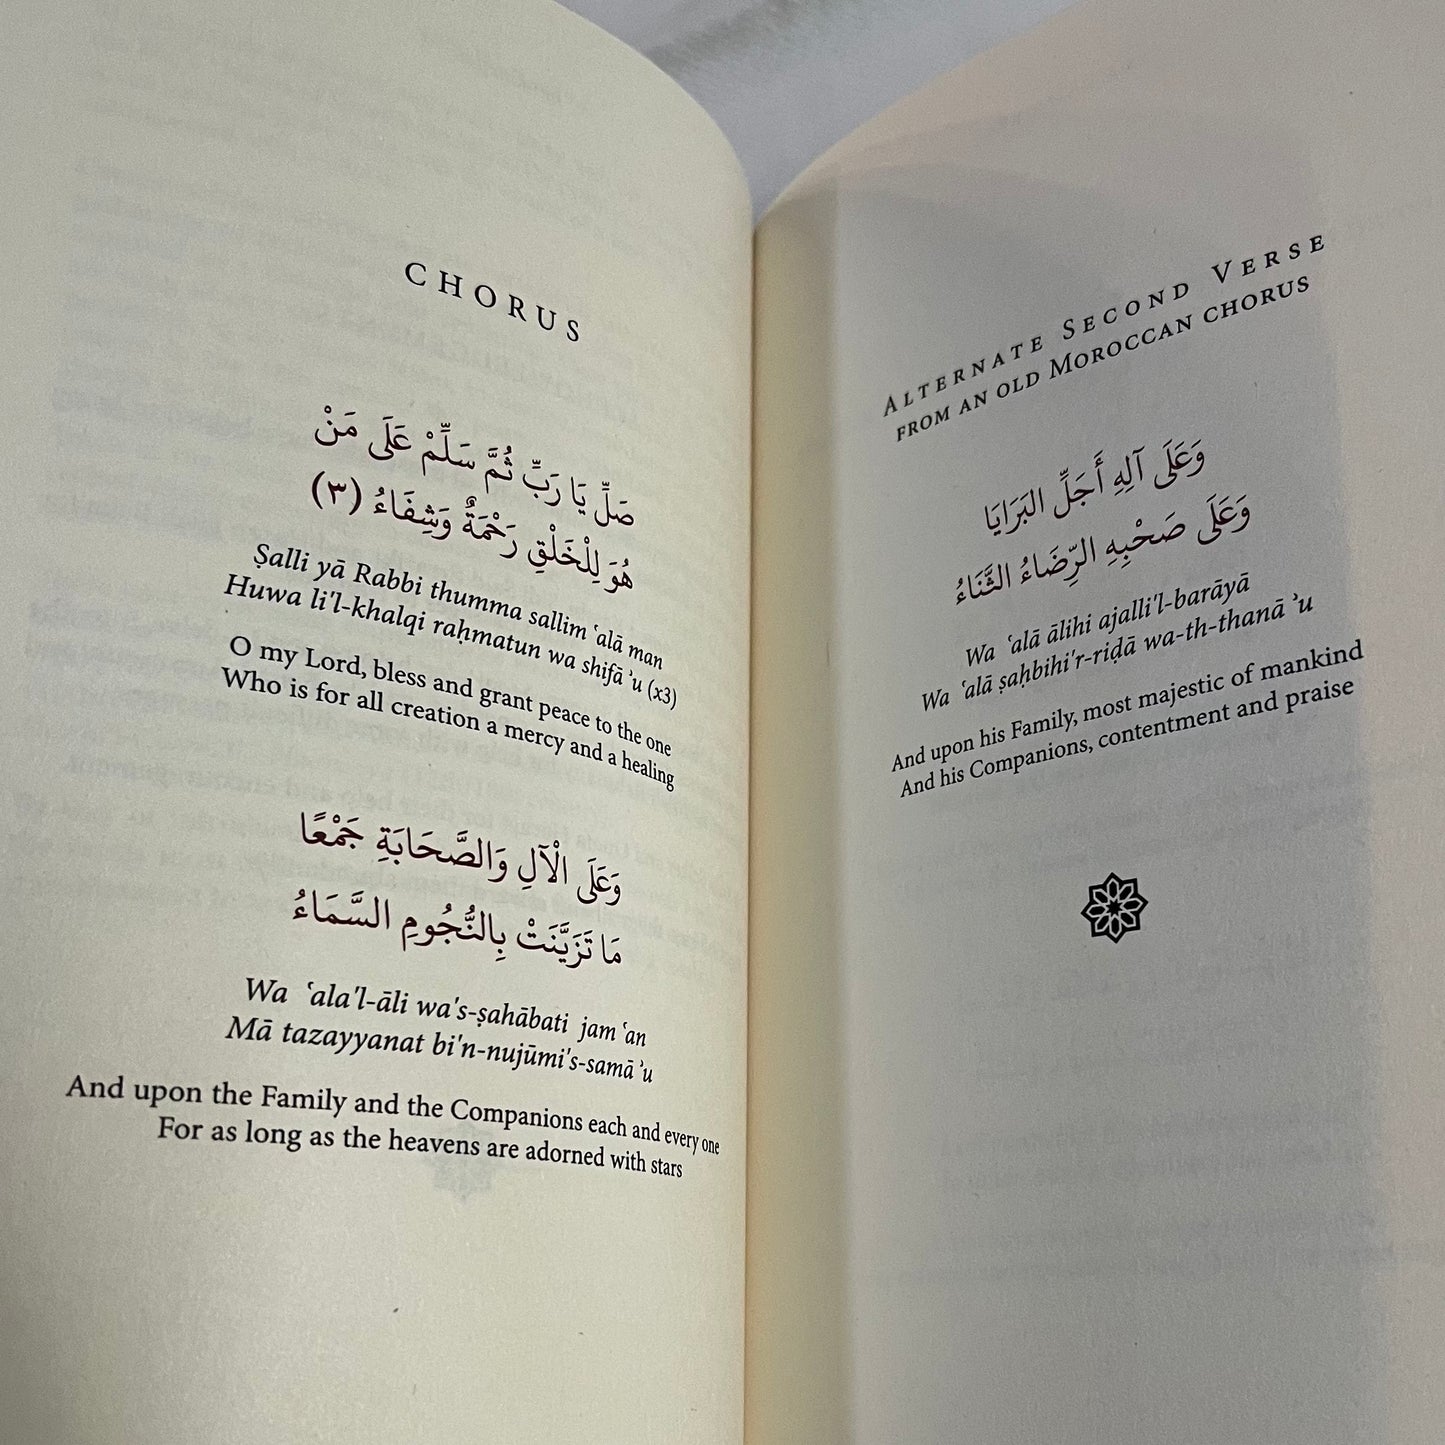 CHORUS
صَلِّ يَا رَبِّ ثُمَّ سَلِّمْ عَلَى مَنْ
هُوَ لِلْخَلْقِ رَحْمَةٌ وَشِفَاءُ (٣)
Ṣalli yā Rabbi thumma sallim ʿalā man
Huwa li'l-khalqi raḥmatun wa shifāʾu (x3)
O my Lord, bless and grant peace to the one
Who is for all creation a mercy and a healing
وَعَلَى الْآلِ وَالصَّحَابَةِ جَمْعًا
مَا تَزَيَّنَتْ بِالنُّجُومِ السَّمَاءُ
Wa ʿala'l-āli wa's-ṣahābati jamʿan
Mā tazayyanat bi'n-nujūmi's-samāʾu
And upon the Family and the Companions each and every one
For as long as the heavens are adorned with stars
ALTERNATE SECOND VERSE
FROM AN OLD MOROCCAN CHORUS
وَعَلَى آلِهِ أَجَلِّ البَرَايَا
وَعَلَى صَحْبِهِ الرِّضَاءُ الثَّنَاءُ
Wa ʿalā ālihi ajalli'l-barāyā
Wa ʿalā ṣaḥbihi'r-riḍā wa-th-thanāʾu
And upon his Family, most majestic of mankind
And his Companions, contentment and praise